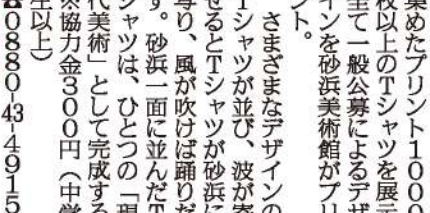 集めたプリント１０００
枚以上のＴシャツを展示
全て一般公募によるデザ
インを砂浜美術館がプリ
ント。
さまざまなデザインの
Ｔシャツが並び、波が寄
せるとＴシャツが砂浜に
写り、風が吹けば踊りだ
す。砂浜一面に並んだＴ
シャツは、ひとつの「現
代美術」として完成する
※協力金３００円（中学
生以上）
☎０８８０-43-４９１５